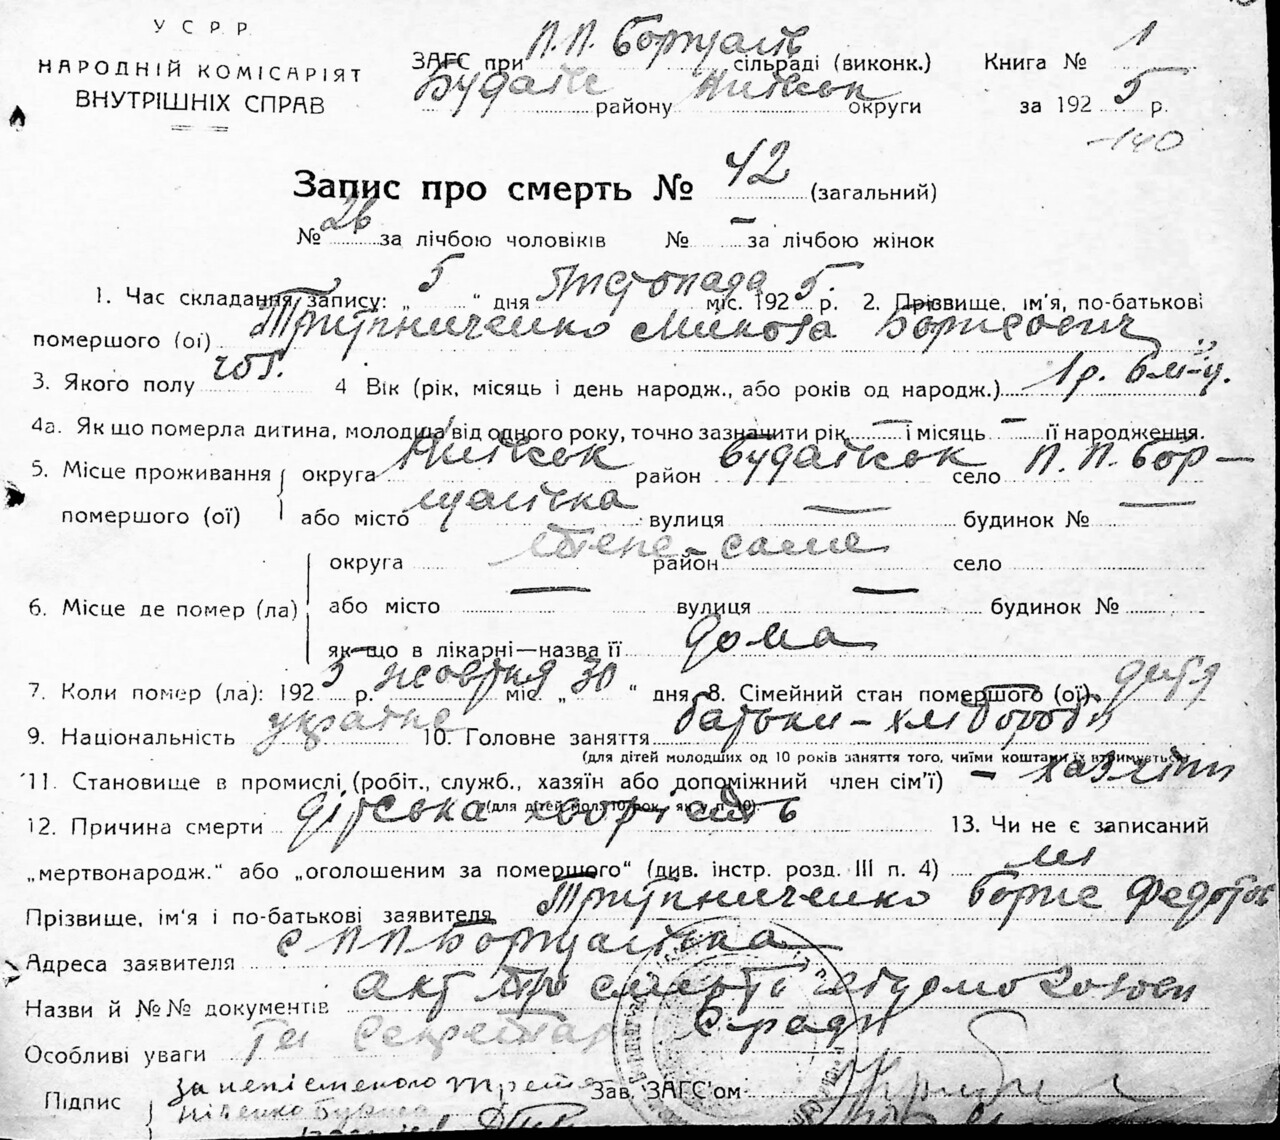 У С Р Р
НАРОДНІЙ КОМІСАРІЯТ
ВНУТРІШНІХ СПРАВ
ЗАГС при П.П. Борщагів сільраді (виконк.)
Будаїв району Київськ округи
Книга № 1
за 192 5 р.
-140
Запис про смерть № 42 (загальний)
№ 26 за лічбою чоловіків № – за лічбою жінок
1. Час складання запису: „ 5 " дня Листопада міс. 192 5 р. 2. Прізвище, ім'я, по-батькові
помершого (ої) Микола Борисович
3. Якого полу чол. 4 Вік (рік, місяць і день народж., або років од народж.) 1 р. 6 м-ц.
4а. Як що померла дитина, молодша від одного року, точно зазначити рік – і місяць – її народження.
5. Місце проживання помершого (ої) округа Київськ район Будаївськ село П. П. Бор-
щагівка або місто вулиця — будинок № —
6. Місце де помер (ла) округа район село
теж саме
або місто — вулиця — будинок №
як-що в лікарні—назва її дома
7. Коли помер (ла): 192 5 р. жовтня міс. „ 30 " дня 8. Сімейний стан помершого (ої) дитя
9. Національність україне 10. Головне заняття батьки – хлібороби
(для дітей молодших од 10 років заняття того, чиїми коштами їх втримується)
11. Становище в промислі (робіт., служб., хазяїн або допоміжний член сім'ї) – хазяїни
(для дітей мол. 10 рок. як у п. 10).
12. Причина смерти дітська хворість 13. Чи не є записаний
„мертвонародж." або „оголошеним за помершого" (див. інстр. розд. III п. 4) ні
Прізвище, ім'я і по-батькові заявителя Борис Федотов
Адреса заявителя с. П П Борщагівка
Назви й №№ документів акт про смерть відомо
Особливі уваги Секретар с/ради
Підпис за неписьменого
Зав. ЗАГС'ом